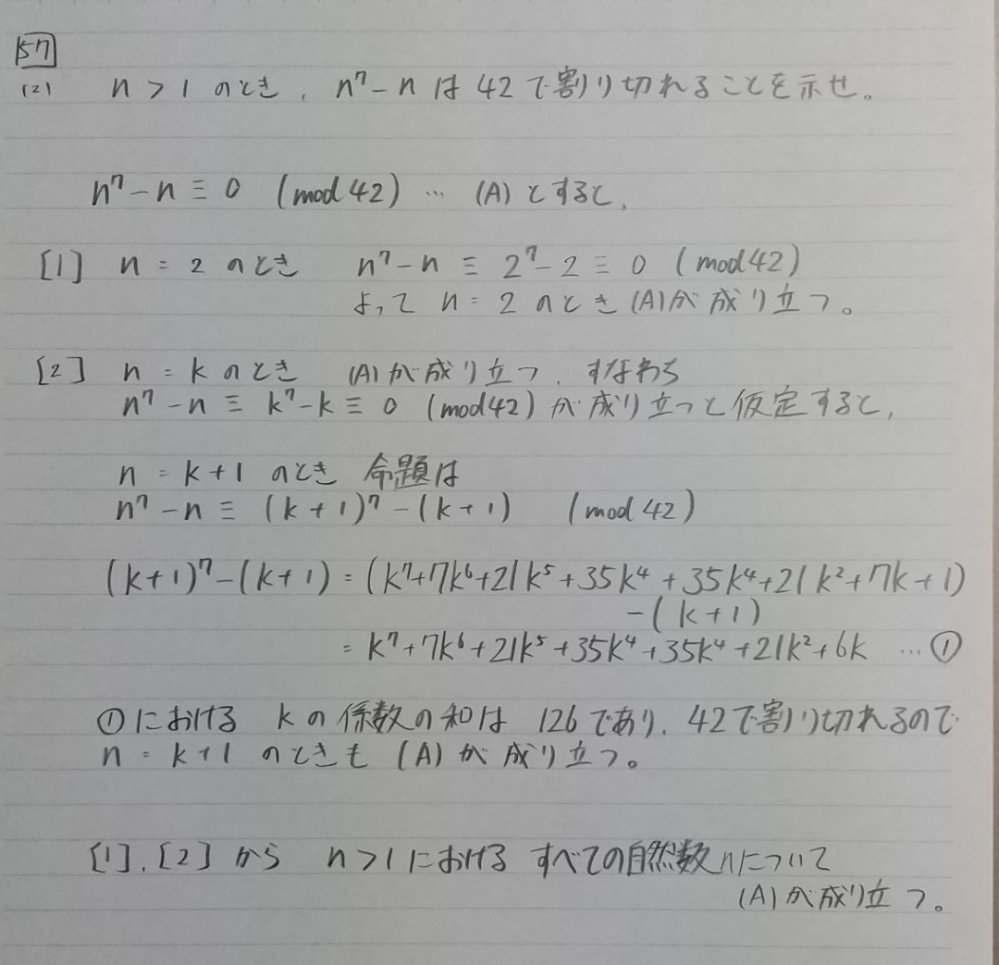 57
(2) n > 1 のとき, n⁷-n は 42で割り切れることを示せ。
n⁷-n ≡ 0 (mod 42) … (A) とすると,
[1] n = 2 のとき n⁷-n ≡ 2⁷-2 ≡ 0 (mod 42)
よって n = 2 のとき (A)が成り立つ。
[2] n = k のとき (A)が成り立つ, すなわち
n⁷-n ≡ k⁷-k ≡ 0 (mod 42) が成り立つと仮定すると,
n = k+1 のとき 命題は
n⁷-n ≡ (k+1)⁷-(k+1) (mod 42)
(k+1)⁷-(k+1) = (k⁷+7k⁶+21k⁵+35k⁴+35k⁴+21k²+7k+1)
-(k+1)
= k⁷+7k⁶+21k⁵+35k⁴+35k⁴+21k²+6k … ①
①における kの係数の和は 126であり, 42で割り切れるので
n = k+1 のときも (A)が成り立つ。
[1], [2] から n>1における すべての自然数nについて
(A)が成り立つ。